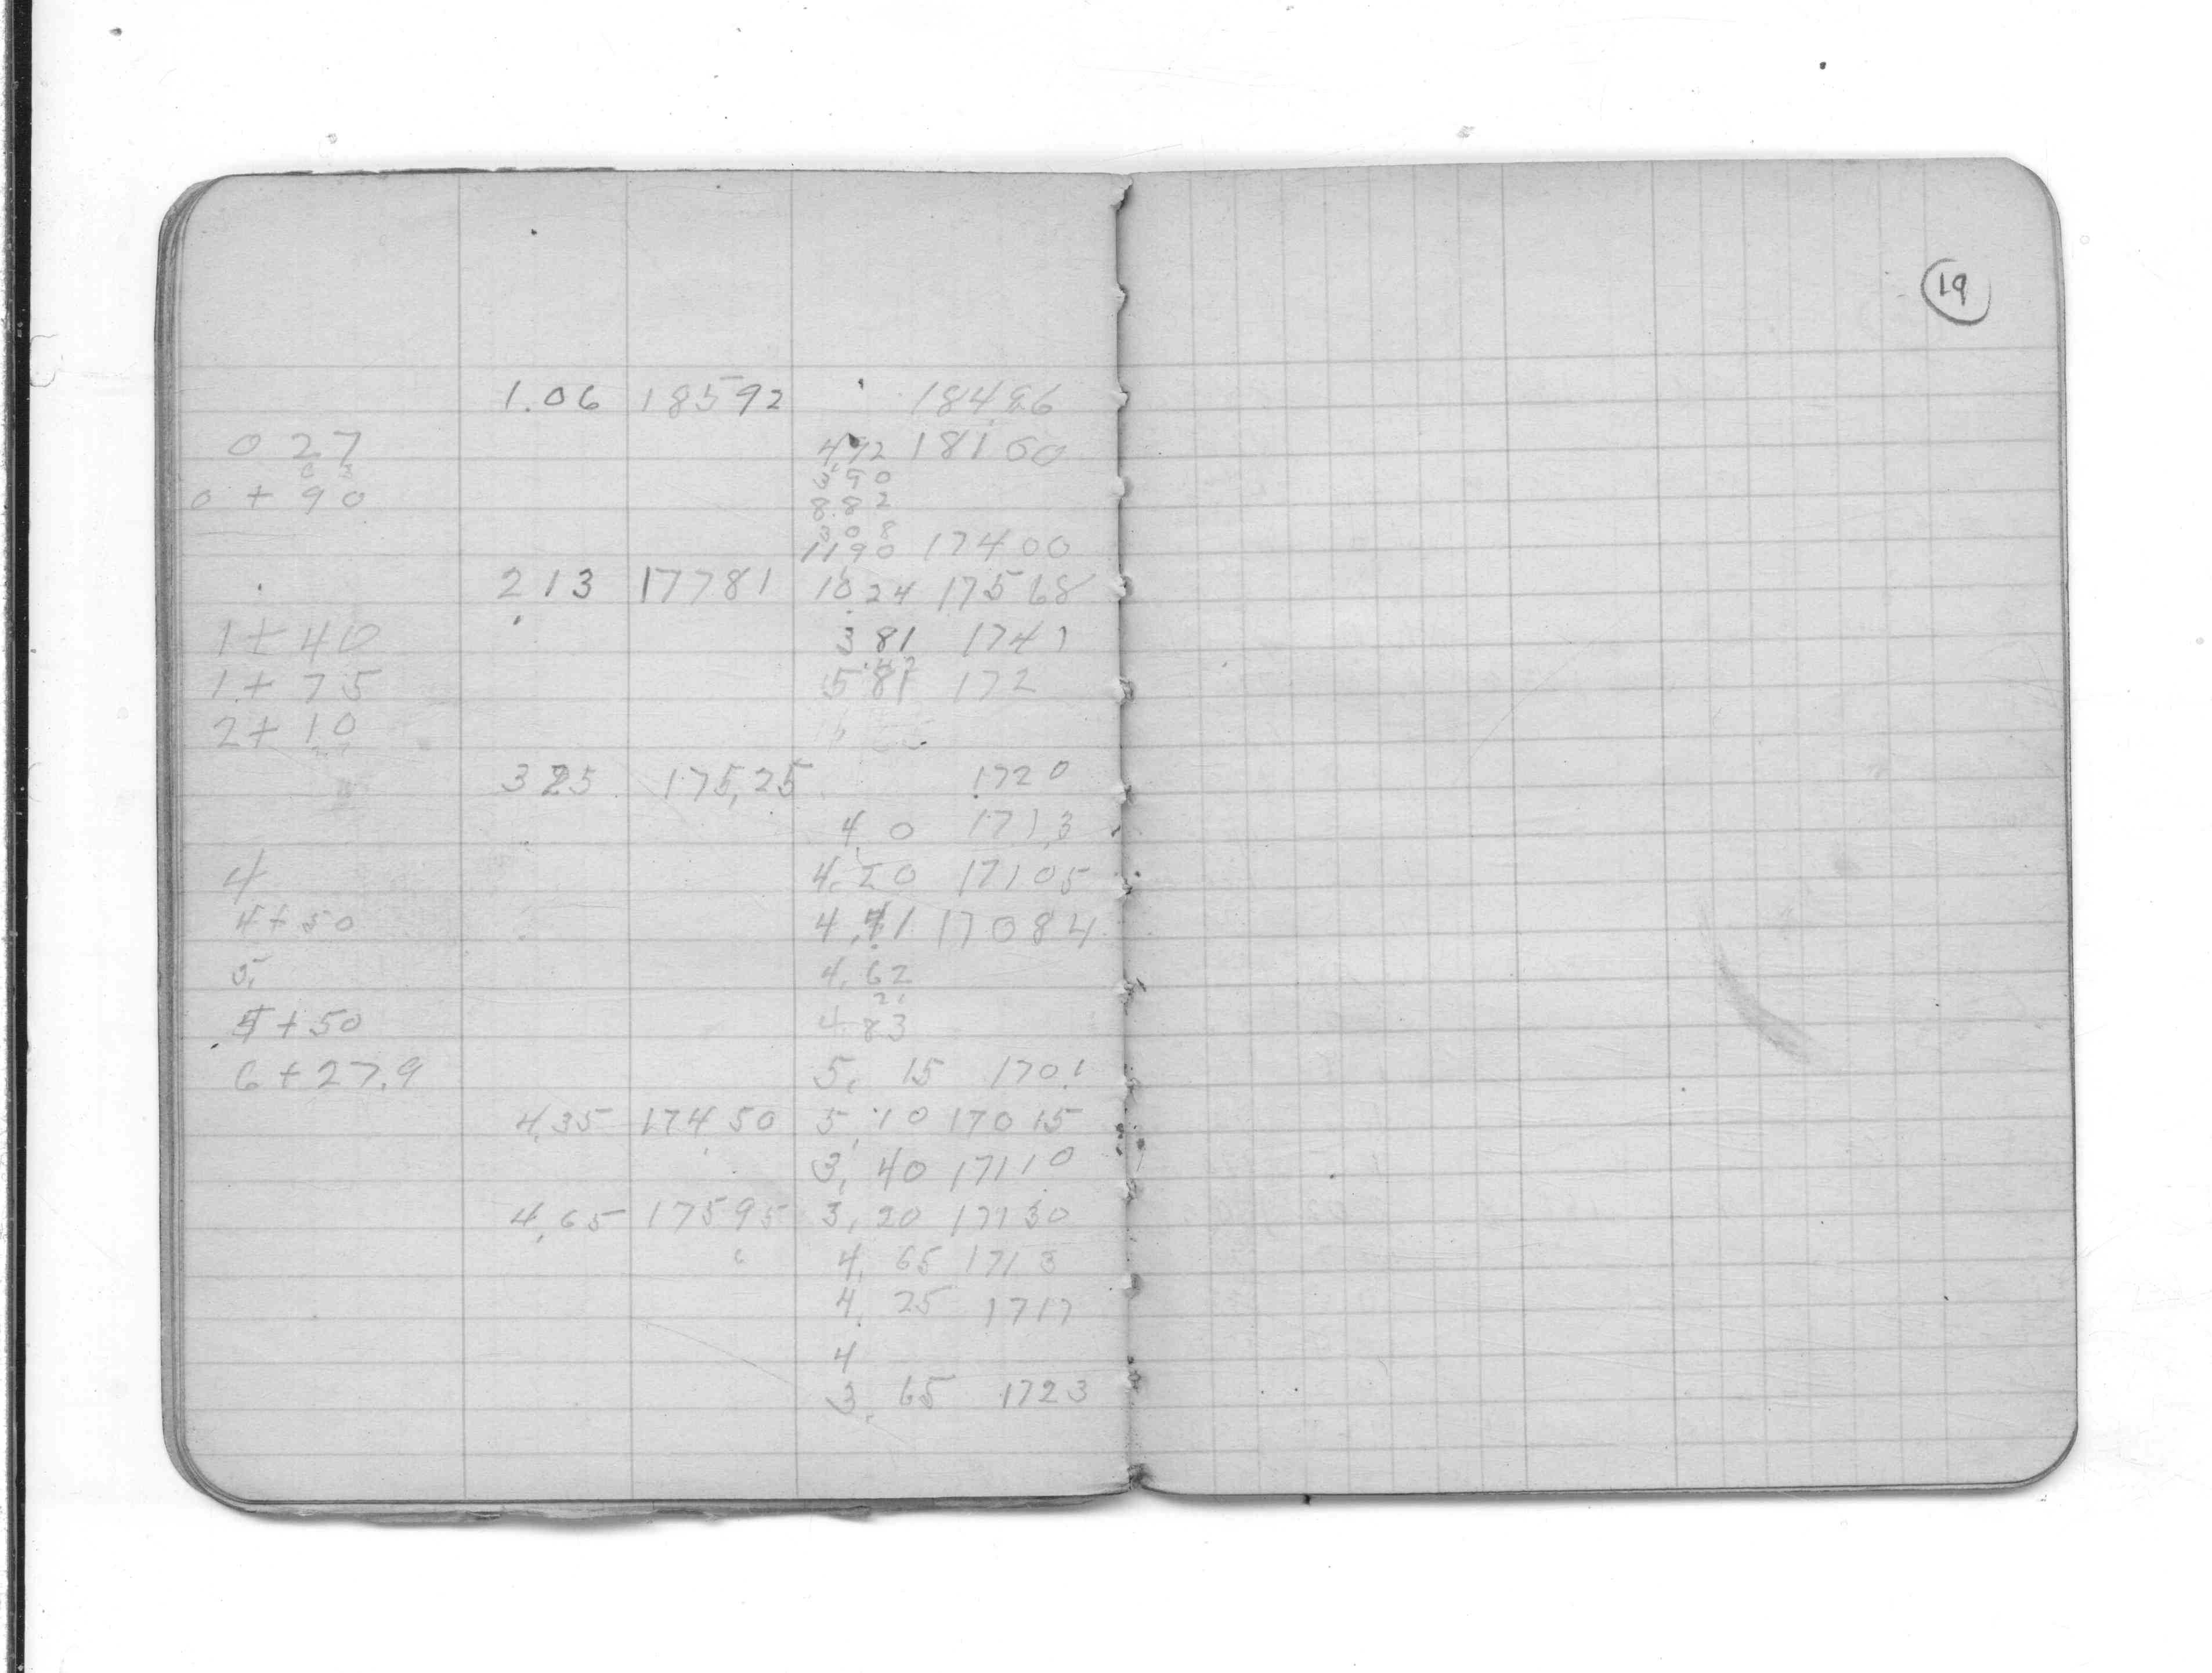 19
1.06 18592 18486
0 27 4,92 18160
3 90
0 + 90 8 82
3 0 8
11 90 17400
2 13 17781 10 24 17568
1 + 40 3 81 1741
1 + 75 5 81 172
2 + 10
3 25 175,25 1720
4, 0 1713
4 4, 20 17105
4 + 50 4, 41 17084
5, 4, 62
21
5 + 50 4 83
6 + 27.9 5, 15 1701
4,35 174 50 5, 10 170 15
3, 40 17110
4,65 17595 3, 20 17130
4, 65 1713
4, 25 1717
4
3, 65 1723